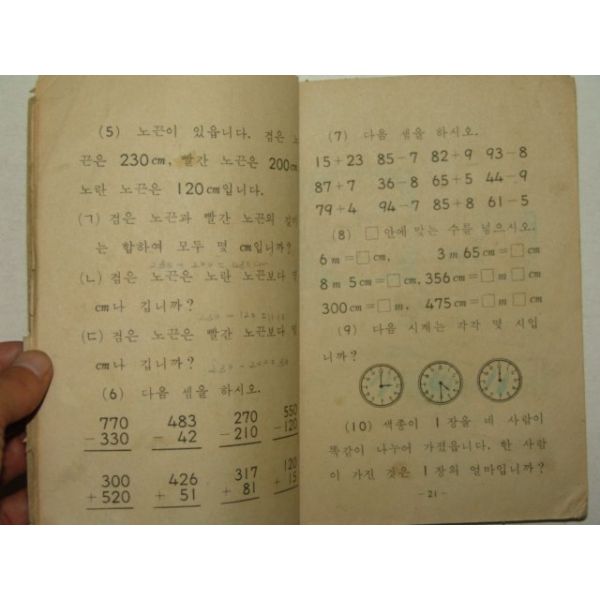 (5) 노끈이 있읍니다. 검은 노
끈은 230cm, 빨간 노끈은 200cm
노란 노끈은 120cm입니다.
(ㄱ) 검은 노끈과 빨간 노끈의 길이
는 합하여 모두 몇 cm입니까?
(ㄴ) 검은 노끈은 노란 노끈보다 몇
cm나 깁니까?
(ㄷ) 검은 노끈은 빨간 노끈보다 몇
cm나 깁니까?
(6) 다음 셈을 하시오.
770 483 270 550
-330 - 42 -210 -120
300 426 317 120
+520 + 51 + 81 + 15
(7) 다음 셈을 하시오.
15+23 85-7 82+9 93-8
87+7 36-8 65+5 44-9
79+4 94-7 85+8 61-5
(8) □안에 맞는 수를 넣으시오.
6m=□cm, 3m 65cm=□cm
8m 5cm=□cm, 356cm=□m□cm
300cm=□m, 475cm=□m□cm
(9) 다음 시계는 각각 몇 시입
니까?
(10) 색종이 1장을 네 사람이
똑같이 나누어 가졌읍니다. 한 사람
이 가진 것은 1장의 얼마입니까?
- 21 -